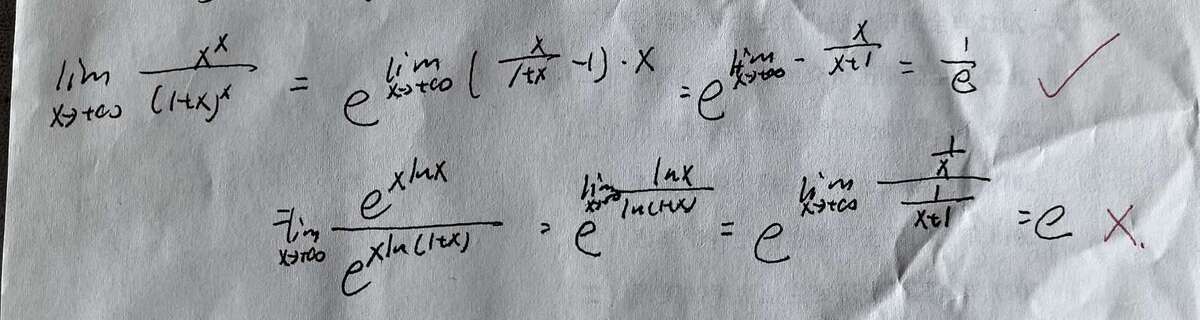 lim x→+∞ x^x / (1+x)^x = e^{lim x→+∞ (x/(1+x) - 1)·x} = e^{lim x→+∞ - x/(x+1)} = 1/e ✓
= lim x→+∞ e^{x ln x} / e^{x ln(1+x)} = e^{lim x→+∞ ln x / ln(1+x)} = e^{lim x→+∞ (1/x) / (1/(x+1))} = e ×.